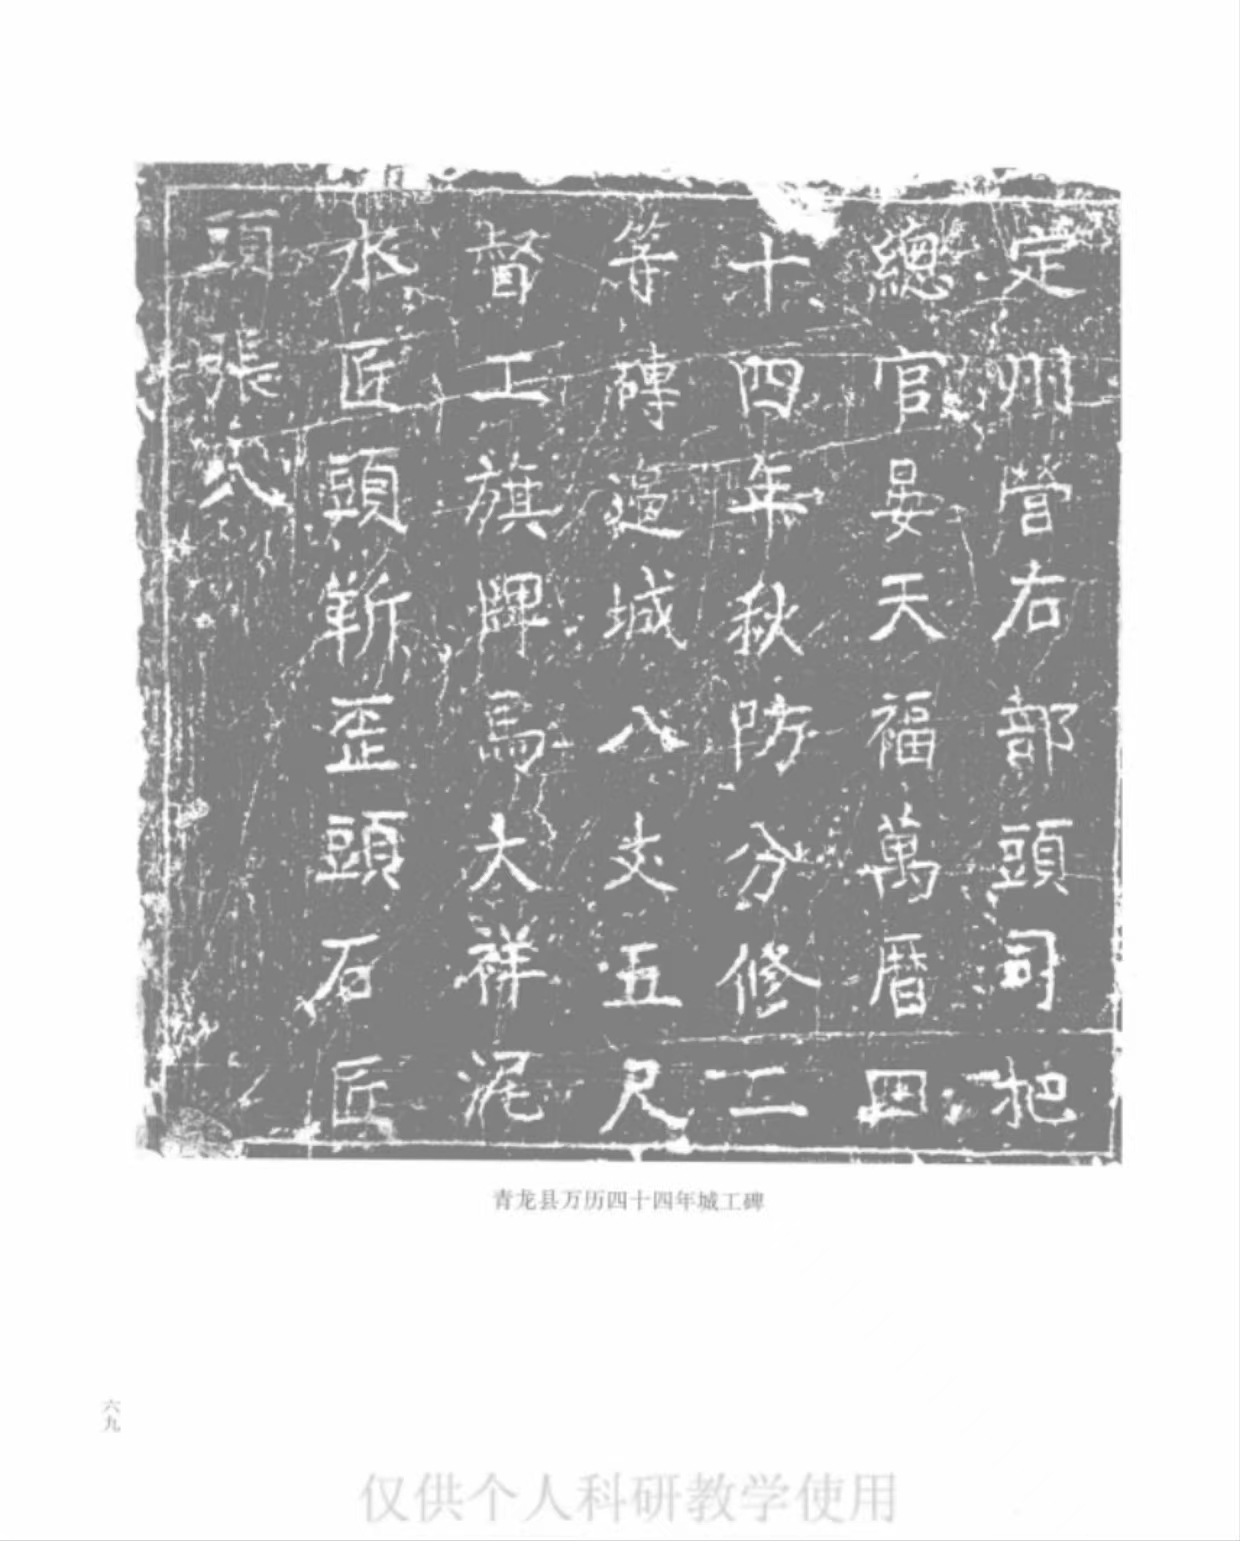 定州營右部頭司把
總官晏天福萬曆四
十四年秋防分修二
等磚邊城八丈五尺
督工旗牌馬大祥泥
水匠頭靳歪頭石匠
頭張八
青龙县万历四十四年城工碑
六九
仅供个人科研教学使用